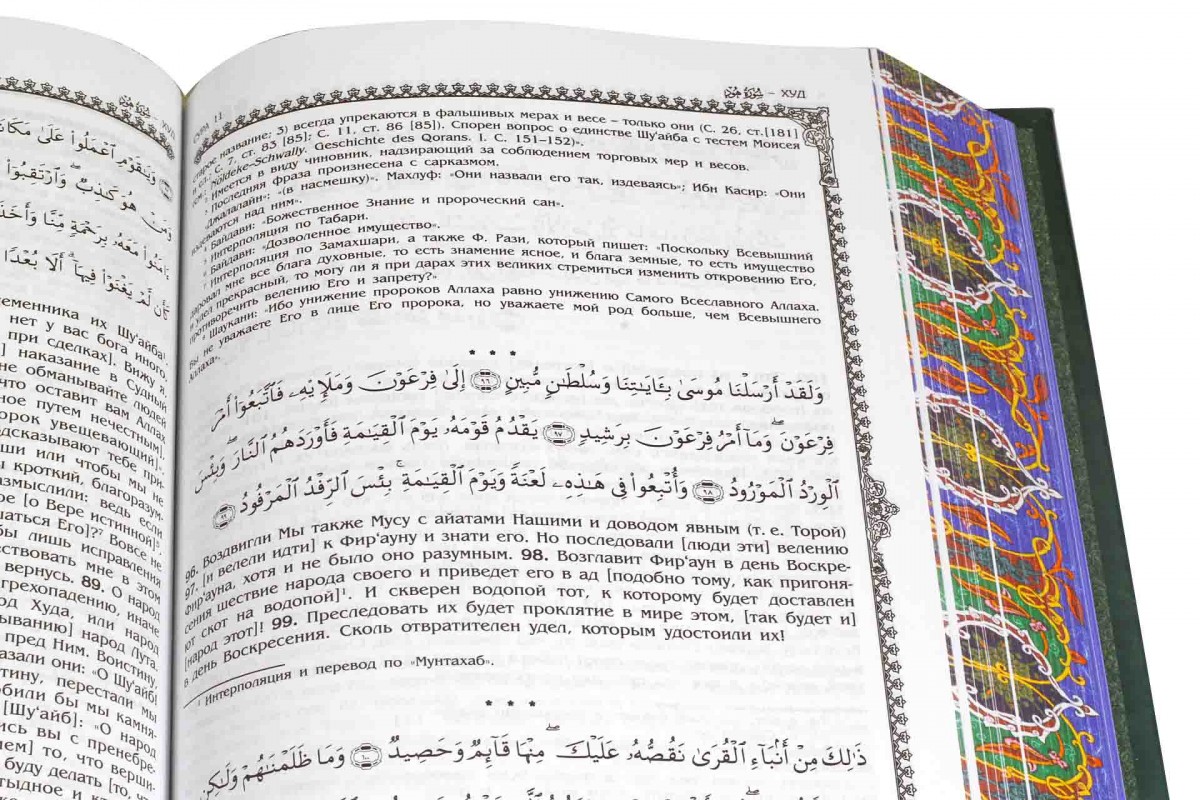 وَيَـٰقَوْمِ ٱعْمَلُوا۟ عَلَىٰ
وَمَنْ هُوَ كَـٰذِبٌ ۖ وَٱرْتَقِبُوٓا۟
ءَامَنُوا۟ مَعَهُۥ بِرَحْمَةٍ مِّنَّا وَأَخَذَ
كَأَن لَّمْ يَغْنَوْا۟ فِيهَآ ۗ أَلَا بُعْدًا
еменника их Шу'айба¹.
нет у вас бога иного
при сделках]. Вижу я
] наказание в Судный
не обманывайте людей
что оставит вам Аллах
ное путем нечестным].
орок увещевающий]».
одсказывают тебе при-
ши или чтобы мы не
ы кроткий, благоразум-
азмыслили: ведь если
ре [о Вере истинной]⁵
шаться Его]?⁷ Вовсе не
бы лишь исправления
ществовать мне в этом
вернусь. 89. О народ
грехопадению, иначе
од Худа, или народ
ыванию] народ Лута.
пред Ним. Воистину,
азали они: «О Шу'айб!
тину, перестали мы
обили бы мы камня-
[Шу'айб]: «О народ
ись вы с пренебре-
ем] то, что верши-
буду делать [то, что
ХУД
СУРА 11
سُورَةُ هُود – ХУД
старое название; 3) всегда упрекаются в фальшивых мерах и весе – только они (С. 26, ст.[181]
и сл.; С. 7, ст. 83 [85]; С. 11, ст. 86 [85]). Спорен вопрос о единстве Шу'айба с тестем Моисея
Nöldeke–Schwally. Geschichte des Qorans. I. С. 151–152)».
² Имеется в виду чиновник, надзирающий за соблюдением торговых мер и весов.
³ Последняя фраза произнесена с сарказмом.
«Джалалайн»: «(в насмешку)». Махлуф: «Они назвали его так, издеваясь»; Ибн Касир: «Они
издеваются над ним».
⁴ Байдави: «Божественное Знание и пророческий сан».
⁵ Интерполяция по Табари.
⁶ Байдави: «Дозволенное имущество».
⁷ Интерполяция по Замахшари, а также Ф. Рази, который пишет: «Поскольку Всевышний
даровал мне все блага духовные, то есть знамение ясное, и блага земные, то есть имущество
и удел прекрасный, то могу ли я при дарах этих великих стремиться изменить откровению Его,
противоречить велению Его и запрету?»
⁸ Шаукани: «Ибо унижение пророков Аллаха равно унижению Самого Всеславного Аллаха.
Вы не уважаете Его в лице Его пророка, но уважаете мой род больше, чем Всевышнего
Аллаха».
* * *
وَلَقَدْ أَرْسَلْنَا مُوسَىٰ بِـَٔايَـٰتِنَا وَسُلْطَـٰنٍ مُّبِينٍ ٩٦ إِلَىٰ فِرْعَوْنَ وَمَلَإِي۟هِۦ فَٱتَّبَعُوٓا۟ أَمْرَ
فِرْعَوْنَ ۖ وَمَآ أَمْرُ فِرْعَوْنَ بِرَشِيدٍ ٩٧ يَقْدُمُ قَوْمَهُۥ يَوْمَ ٱلْقِيَـٰمَةِ فَأَوْرَدَهُمُ ٱلنَّارَ ۖ وَبِئْسَ
ٱلْوِرْدُ ٱلْمَوْرُودُ ٩٨ وَأُتْبِعُوا۟ فِى هَـٰذِهِۦ لَعْنَةً وَيَوْمَ ٱلْقِيَـٰمَةِ ۚ بِئْسَ ٱلرِّفْدُ ٱلْمَرْفُودُ ٩٩
96. Воздвигли Мы также Мусу с айатами Нашими и доводом явным (т. е. Торой)
97. [и велели идти] к Фир'ауну и знати его. Но последовали [люди эти] велению
Фир'ауна, хотя и не было оно разумным. 98. Возглавит Фир'аун в день Воскре-
сения шествие народа своего и приведет его в ад [подобно тому, как пригоня-
ют скот на водопой]¹. И скверен водопой тот, к которому будет доставлен
[народ этот]! 99. Преследовать их будет проклятие в мире этом, [так будет и]
в день Воскресения. Сколь отвратителен удел, которым удостоили их!
¹ Интерполяция и перевод по «Мунтахаб».
* * *
ذَٰلِكَ مِنْ أَنۢبَآءِ ٱلْقُرَىٰ نَقُصُّهُۥ عَلَيْكَ ۖ مِنْهَا قَآئِمٌ وَحَصِيدٌ ١٠٠ وَمَا ظَلَمْنَـٰهُمْ وَلَـٰكِن